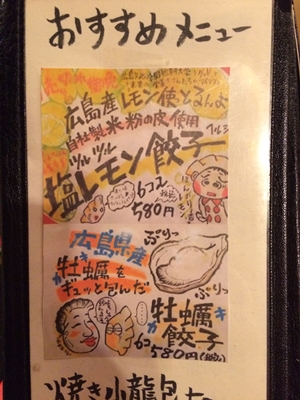 おすすめメニュー
広島産レモン使とるんよ
自社製米粉の皮使用
ツルツル
塩レモン餃子
6コ
580円
広島県産
ぷりっ
牡蠣を
カキ
ギュッと包んだ
ぷりっ
牡蠣
カキ
餃子
6コ580円(税込)
焼き小龍包